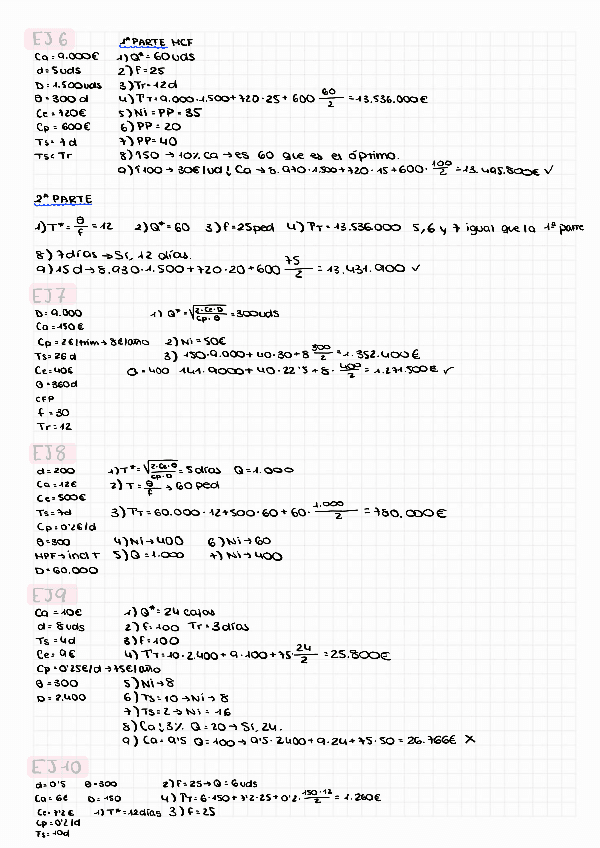 EJ6
1ª PARTE MCF
Ca = 9.000€ 1) Q* = 60uds
d = 5uds 2) f = 25
D = 1.500uds 3) Tr = 12d
θ = 300 d 4) TT = 9.000·1.500 + 720·25 + 600 60/2 = 13.536.000€
Ce = 720€ 5) Ni = PP = 35
Cp = 600€ 6) PP = 20
Ts = 7d 7) PP = 40
Ts < Tr 8) 150 → 10% Ca → es 60 que es es óptimo.
9) 100 → 30€/ud ↓ Ca → 8.970·1.500 + 720·15 + 600· 100/2 = 13.495.800€ ✓
2ª PARTE
1) T* = θ/f = 12 2) Q* = 60 3) f = 25ped 4) PT = 13.536.000 5,6 y 7 igual que la 1ª parte
8) 7días → Sí, 12 días.
9) 15d → 8.930·1.500 + 720·20 + 600 75/2 = 13.431.900 ✓
EJ7
D = 9.000 1) Q* = √2·Ce·D/Cp·θ = 300uds
Ca = 150€
Cp = 2€/trim → 8€/año 2) Ni = 50€
Ts = 26d 3) 150·9.000 + 40·30 + 8 300/2 = 1.352.400€
Ce = 40€ Q = 400 141·9000 + 40·22'5 + 8· 400/2 = 1.271.500€ ✓
θ = 360d
CFP
f = 30
Tr = 12
EJ8
d = 200 1) T* = √2·Ce·θ/Cp·D = 5días Q = 1.000
Ca = 12€ 2) T = θ/f → 60 ped
Ce = 500€
Ts = 7d 3) TT = 60.000·12 + 500·60 + 60· 1.000/2 = 780.000€
Cp = 0'2€/d
θ = 300 4) Ni → 400 6) Ni → 60
MPF → incl T 5) Q = 1.000 7) Ni → 400
D = 60.000
EJ9
Ca = 10€ 1) Q* = 24 cajas
d = 8uds 2) f = 100 Tr = 3días
Ts = 4d 3) f = 100
Ce = 9€ 4) TT = 10·2.400 + 9·100 + 75· 24/2 = 25.800€
Cp = 0'25€/d → 75€/año
θ = 300 5) Ni → 8
D = 2.400 6) Ts = 10 → Ni → 8
7) Ts = 2 → Ni = 16
8) Ca ↓ 3% Q = 20 → Sí, 24.
9) Ca = 9'5 Q = 100 → 9'5·2400 + 9·24 + 75·50 = 26.766€ X
EJ10
d = 0'5 θ = 300 2) f = 25 → Q = 6uds
Ca = 6€ D = 150 4) PT = 6·150 + 7'2·25 + 0'2· 150·12/2 = 1.260€
Ce = 7'2€ 1) T* = 12días 3) f = 25
Cp = 0'2/d
Ts = 10d